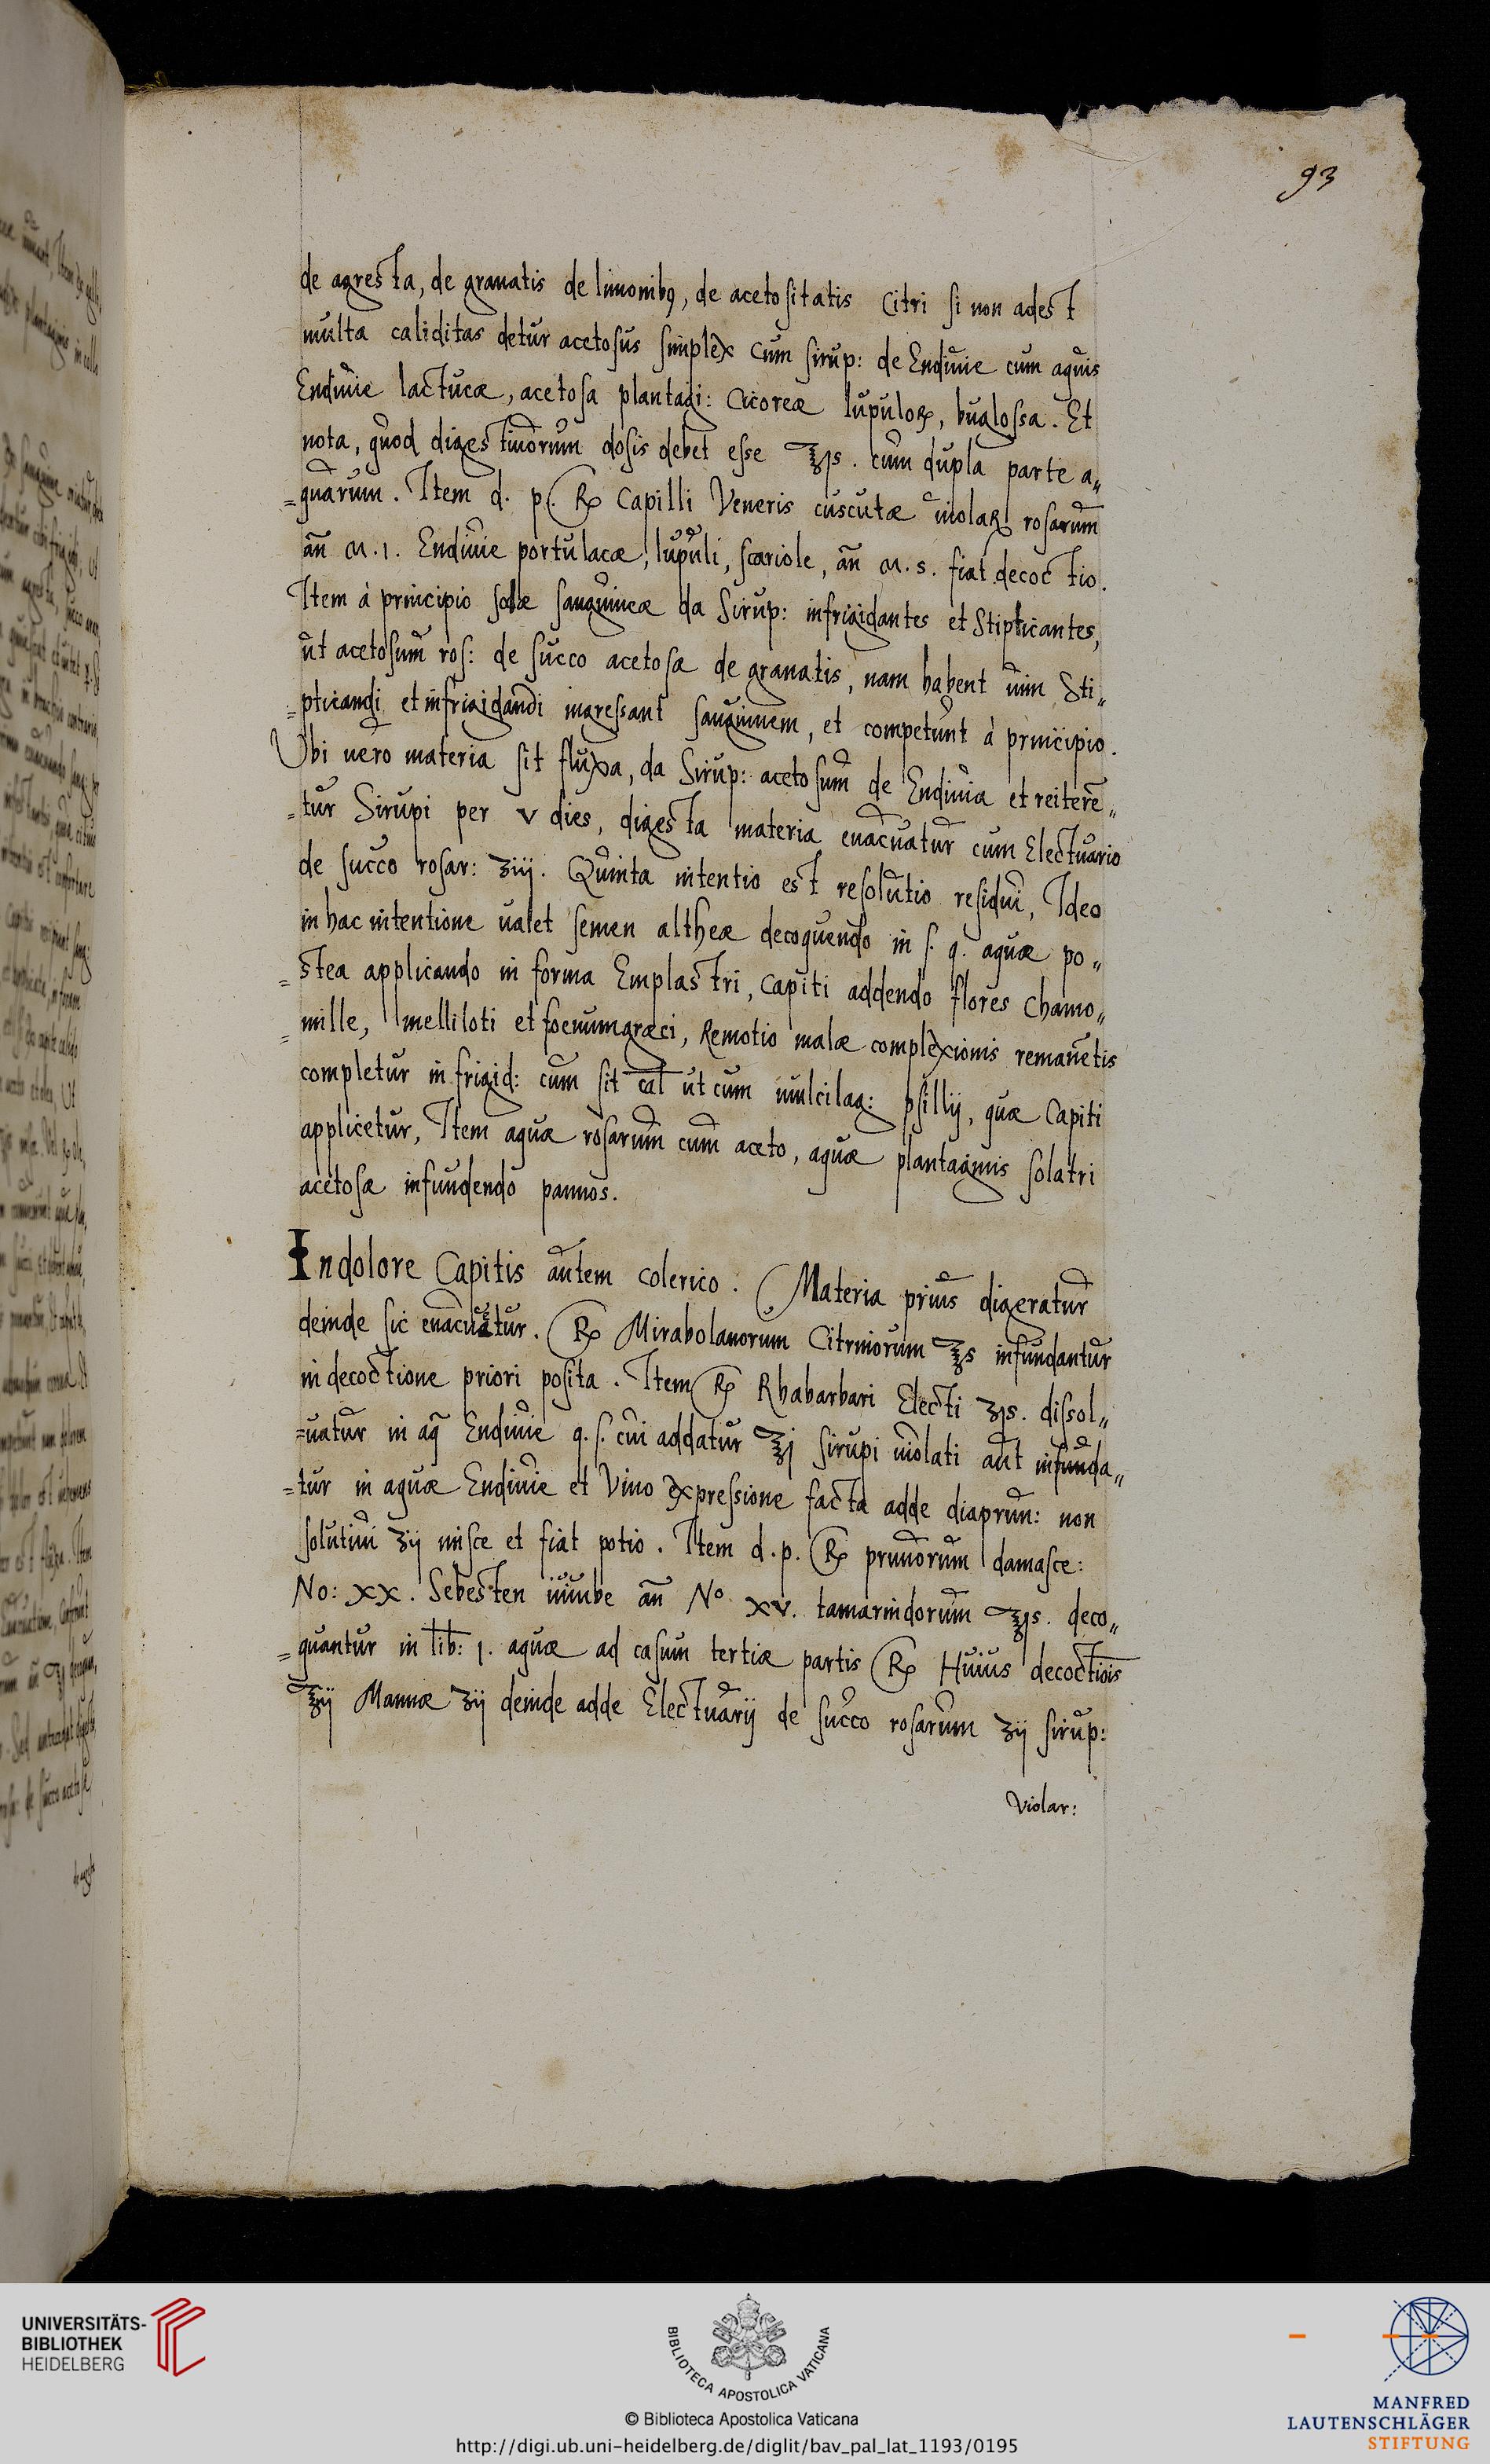 93
de agresta, de granatis de limonibꝯ, de acetositatis Citri si non adest
multa caliditas detur acetosus simplex cum sirup: de Endiuie cum aquis
Endiuie lactucæ, acetosa plantagi: Cicoreæ lupuloꝝ, buglossa. Et
nota, quod digestiuorum dosis debet esse ℥js. cum dupla parte a„
=quarum. Item d. p. ℞ Capilli Veneris cuscutæ uiolaꝝ rosarum
añ M.1. Endiuie portulacæ, lupuli, scariole, añ M.s. fiat decoctio.
Item à principio sodæ sanguineæ da Sirup: infrigidantes et Stipticantes,
ut acetosum ros: de succo acetosæ de granatis, nam habent uim Sti„
=pticandi et infrigidandi ingressant sanguinem, et competunt à principio.
Ubi uero materia sit fluxa, da Sirup: acetosum de Endiuia et reiterē„
=tur Sirupi per v dies, digesta materia euacuatur cum Electuario
de succo rosar: ʒiij. Quinta intentio est resolutio residui, Ideo
in hac intentione ualet semen altheæ decoquendo in s. q. aquæ po„
=stea applicando in forma Emplastri, capiti addendo flores Chamo„
=mille, melliloti et foenumgræci, Remotio malæ complexionis remanētis
completur in frigid: cum sit cal ut cum mulcilag: psillij, quæ Capiti
applicetur, Item aquæ rosarum cum aceto, aquæ plantaginis solatri
acetosæ infundendo pannos.
Indolore Capitis autem colerico. Materia prius digeratur
deinde sic euacuatur. ℞ Mirabolanorum Citriniorum ℥s infundantur
in decoctione priori posita. Item ℞ Rhabarbari Electi ʒjs. dissol„
=uatur in aq̃ Endiuie q. s. cui addatur ℥j sirupi uiolati aut infunda„
=tur in aquæ Endiuie et Vino expressione facta adde diaprun: non
solutiui ʒij misce et fiat potio. Item d. p. ℞ prunorum damasce:
No: xx. Sebesten iuiube añ No xv. tamarindorum ℥js. deco„
=quantur in lib: 1. aquæ ad casum tertiæ partis ℞ Huius decoctiōis
℥ij Mannæ ʒij deinde adde Electuarij de succo rosarum ʒij sirup:
Violar:
UNIVERSITÄTS-
BIBLIOTHEK
HEIDELBERG
BIBLIOTECA APOSTOLICA VATICANA
© Biblioteca Apostolica Vaticana
http://digi.ub.uni-heidelberg.de/diglit/bav_pal_lat_1193/0195
MANFRED
LAUTENSCHLÄGER
STIFTUNG